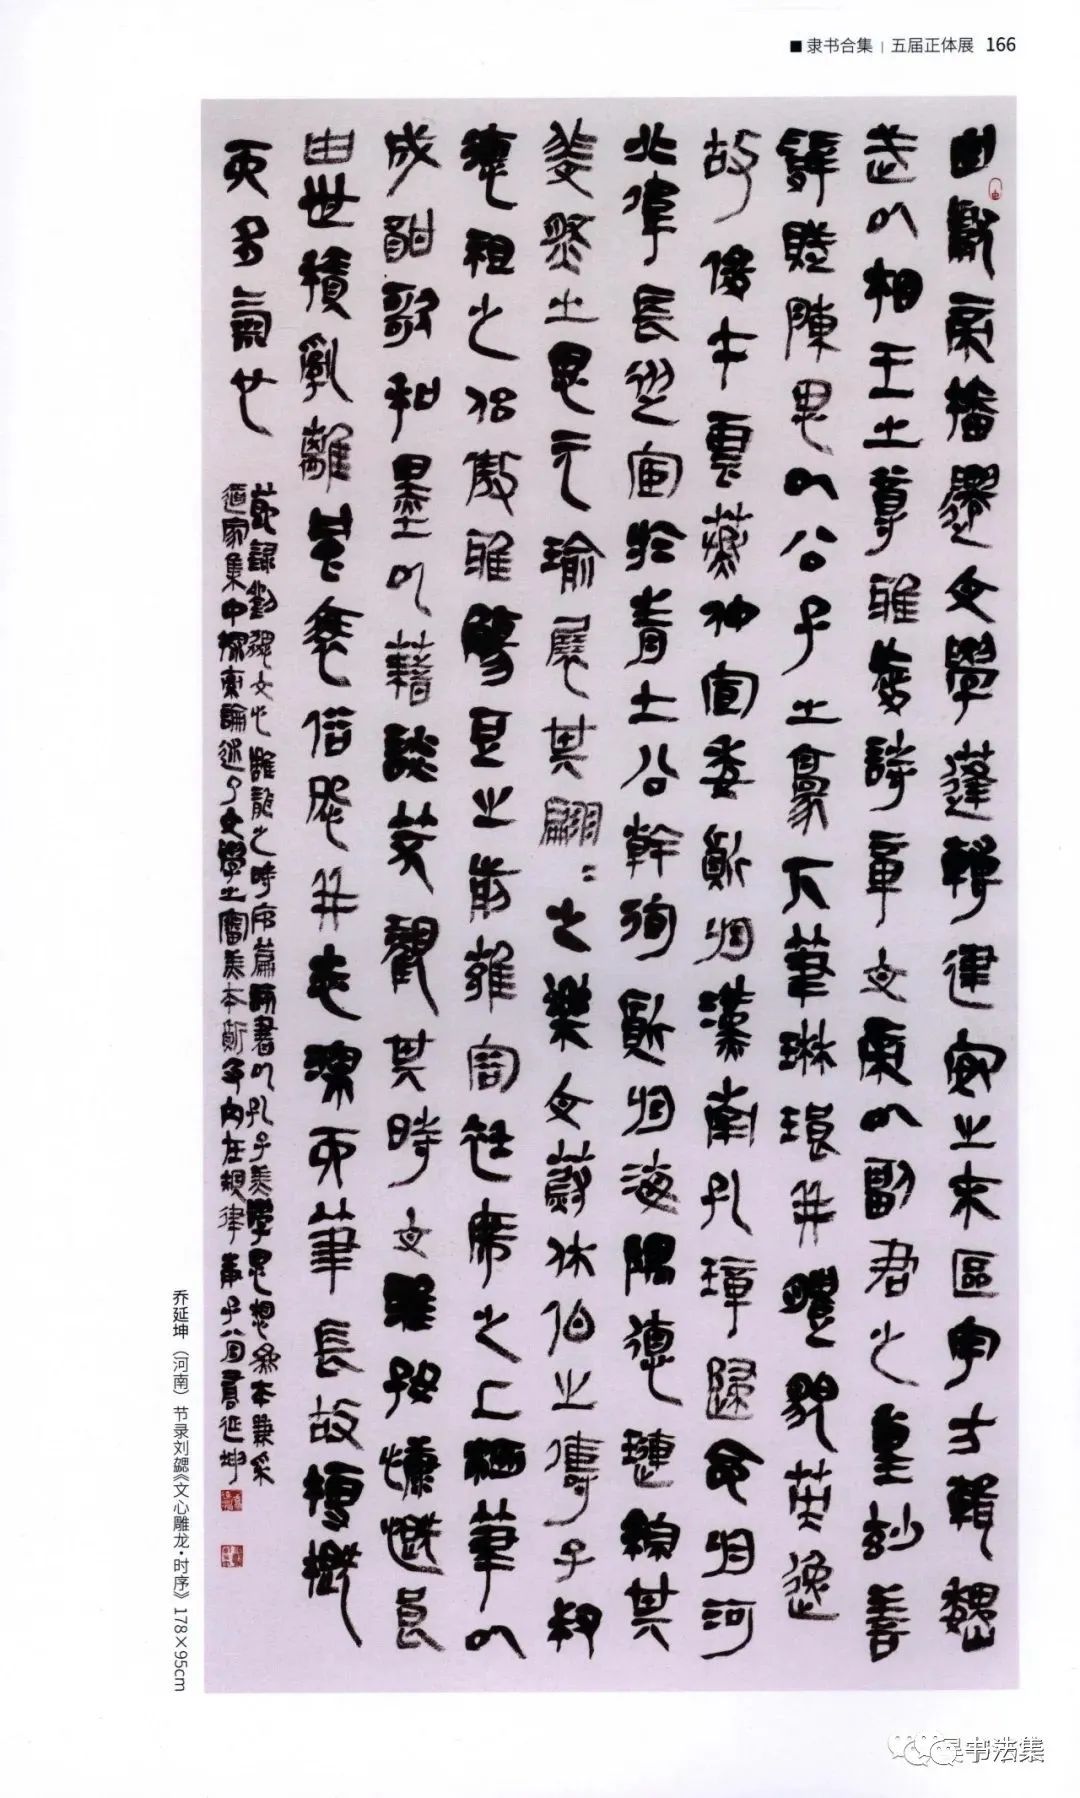 隶书合集 | 五届正体展 166
自獻帝播遷文學蓬轉建安之末區宇方輯魏
武以相王之尊雅愛詩章文帝以副君之重妙善
辭賦陳思以公子之豪下筆琳琅并體貌英逸
故俊才雲蒸仲宣委質於漢南孔璋歸命於河
北偉長從宦於青土公幹徇質於海隅德璉綜其
斐然之思元瑜展其翩〻之樂文蔚休伯之儔于叔
德祖之侶傲雅觴豆之前雍容衽席之上洒筆以
成酣歌和墨以藉談笑觀其時文雅好慷慨良
由世積亂離風衰俗怨并志深而筆長故梗概
而多氣也
節錄劉勰文心雕龍之時序篇論書以孔子美學思想為本兼采
道家集中探索論述了文學之審美本質與內在規律庚子八月書延坤
乔延坤（河南）节录刘勰《文心雕龙·时序》178×95cm
书法集